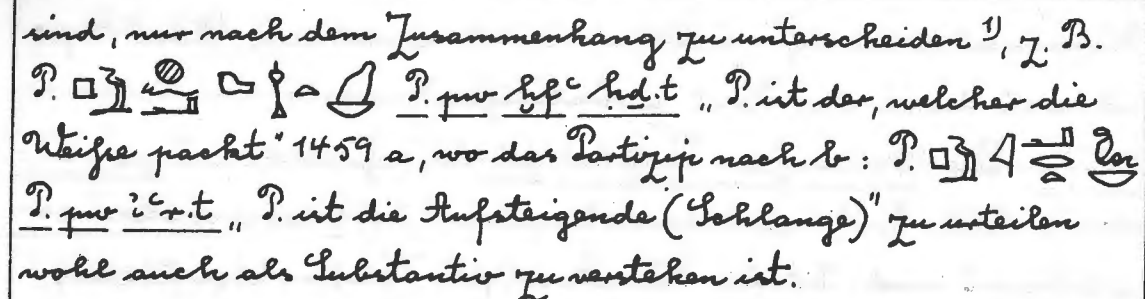 sind, nur nach dem Zusammenhang zu unterscheiden ¹⁾, z. B.
P. P. pw ḫfꜥ ḥḏ.t „P. ist der, welcher die
Weiße packt“ 1459 a, wo das Partizip nach b: P.
P. pw iꜥr.t „P. ist die Aufsteigende (Schlange)“ zu urteilen
wohl auch als Substantiv zu verstehen ist.